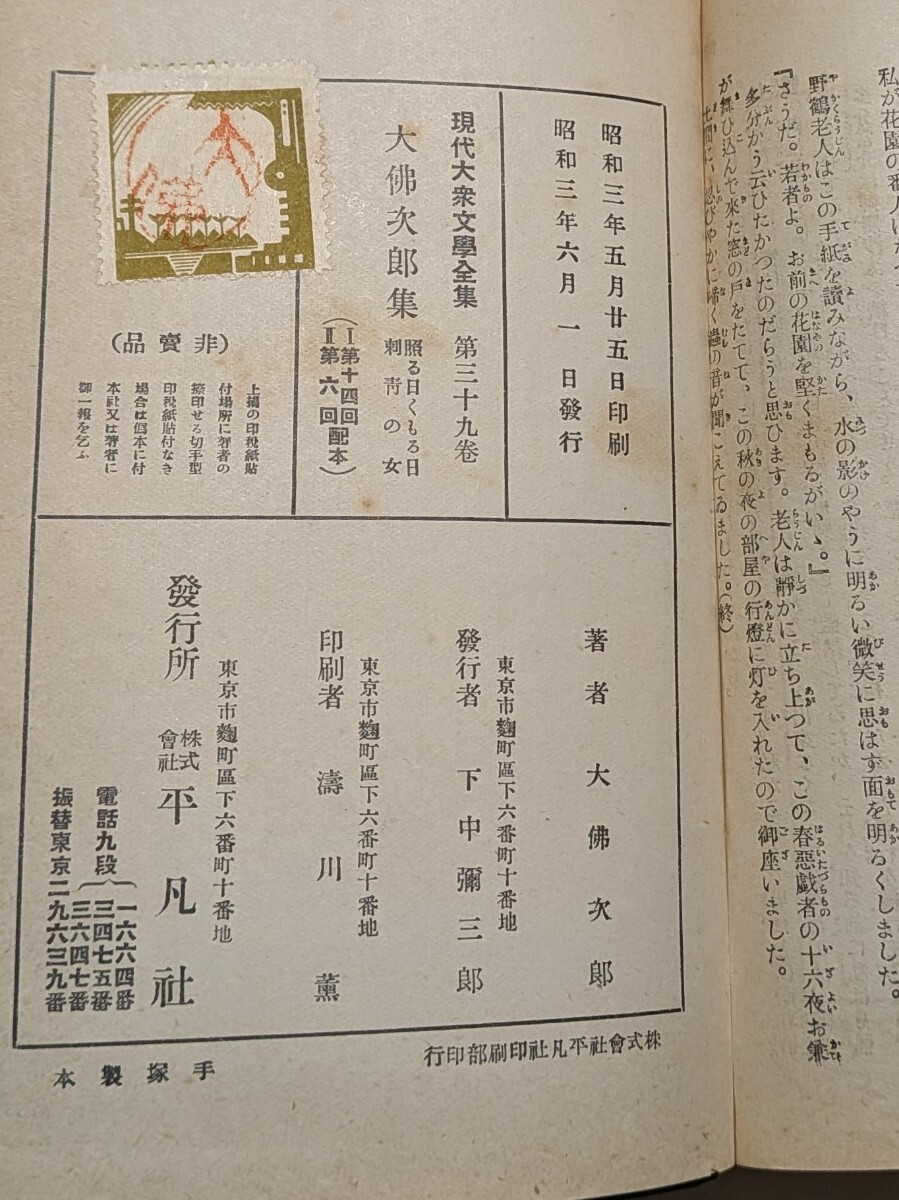 私が花園の番人は
野鶴老人はこの手紙を讀みながら、水の影のやうに明るい微笑に思はず面を明るくしました。
『さうだ。若者よ。お前の花園を堅くまもるがいゝ。』
多分かう云ひたかつたのだらうと思ひます。老人は靜かに立ち上つて、この春惡戯者の十六夜お鎌
が舞ひ込んで來た窓の戸をたてて、この秋の夜の部屋の行燈に灯を入れたので御座いました。
土間に、忍びやかに啼く蟲の音が聞こえてゐました。(終)
昭和三年五月廿五日印刷
昭和三年六月一日發行
現代大衆文學全集 第三十九卷
大佛次郎集
照る日くもる日
刺青の女
(Ⅰ第十四回
Ⅱ第六回配本)
(非賣品)
上掲の印税紙貼
付場所に著者の
捺印せる切手型
印税紙貼付なき
場合は僞本に付
本社又は著者に
御一報を乞ふ
著者 大佛次郎
東京市麴町區下六番町十番地
發行者 下中彌三郎
東京市麴町區下六番町十番地
印刷者 濤川薰
東京市麴町區下六番町十番地
發行所 株式會社 平凡社
電話九段
一六六四番
三四七五番
三六四七番
振替東京二九六三九番
株式會社平凡社印刷部印行
手塚製本